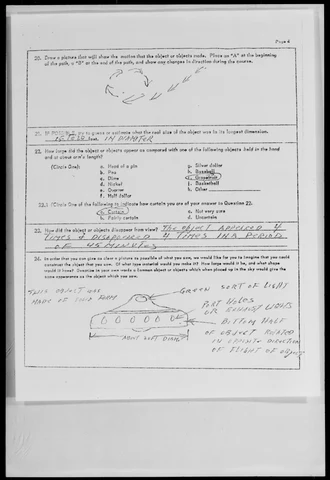 Page 4
20. Draw a picture that will show the motion that the object or objects made. Place an "A" at the beginning
of the path, a "B" at the end of the path, and show any changes in direction during the course.
21. IF POSSIBLE, try to guess or estimate what the real size of the object was in its longest dimension.
feet. IN DIAMETER
22. How large did the object or objects appear as compared with one of the following objects held in the hand
and at about arm's length?
(Circle One):
a. Head of a pin
b. Pea
c. Dime
d. Nickel
e. Quarter
f. Half dollar
g. Silver dollar
h. Baseball
i. Grapefruit
j. Basketball
k. Other
22.1 (Circle One of the following to indicate how certain you are of your answer to Question 22.
a. Certain
b. Fairly certain
c. Not very sure
d. Uncertain
23. How did the object or objects disappear from view? THE OBJECT APPEARED 4
TIMES & DISAPPEARED 4 TIMES IN A PERIOD
OF 45 MINUTES
24. In order that you can give as clear a picture as possible of what you saw, we would like for you to imagine that you could
construct the object that you saw. Of what type material would you make it? How large would it be, and what shape
would it have? Describe in your own words a common object or objects which when placed up in the sky would give the
same appearance as the object which you saw.
THIS OBJECT WAS
MADE OF THIS FORM
GREEN SORT OF LIGHT
PORT HOLES
OR LIGHTS
BOTTOM HALF
OF OBJECT ROTATED
IN OPPOSITE DIRECTION
OF FLIGHT OF OBJECT
ABOUT 50 FT DIAMETER